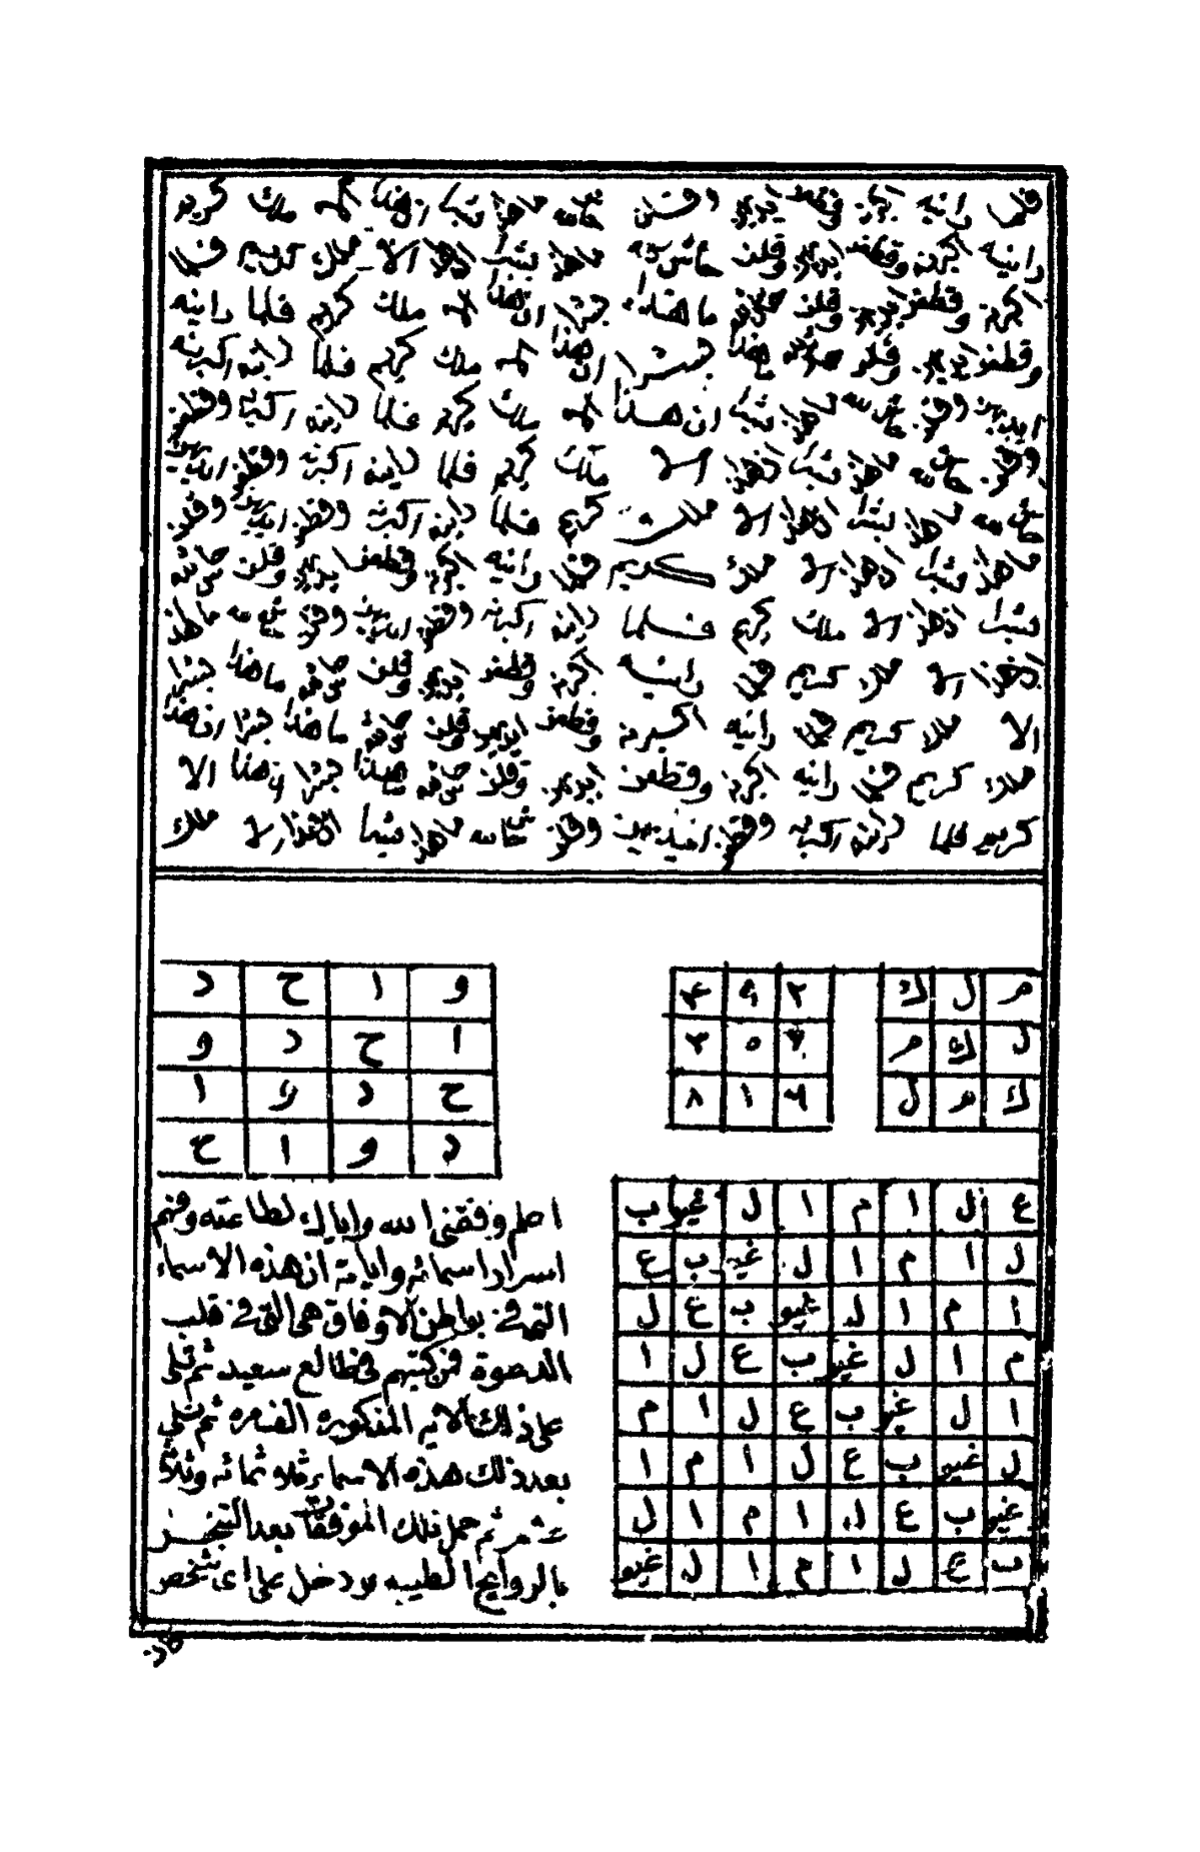 فلما راينه اكبرنه وقطعن ايديهن وقلن حاش لله ماهذا بشرا ان هذا الا ملك كريم
راينه اكبرنه وقطعن ايديهن وقلن حاش لله ماهذا بشرا ان هذا الا ملك كريم فلما
اكبرنه وقطعن ايديهن وقلن حاش لله ما هذا بشرا ان هذا الا ملك كريم فلما راينه
وقطعن ايديهن وقلن حاش لله ما هذا بشرا ان هذا الا ملك كريم فلما راينه اكبرنه
ايديهن وقلن حاش لله ماهذا بشرا ان هذا الا ملك كريم فلما راينه اكبرنه وقطعن
وقلن حاش لله ماهذا بشرا ان هذا الا ملك كريم فلما راينه اكبرنه وقطعن ايديهن
حاش لله ماهذا بشرا ان هذا الا ملك كريم فلما راينه اكبرنه وقطعن ايديهن وقلن
ماهذا بشرا ان هذا الا ملك كريم فلما راينه اكبرنه وقطعن ايديهن وقلن حاش لله
بشرا ان هذا الا ملك كريم فلما راينه اكبرنه وقطعن ايديهن وقلن حاش لله ماهذا
ان هذا الا ملك كريم فلما راينه اكبرنه وقطعن ايديهن وقلن حاش لله ما هذا بشرا
الا ملك كريم فلما راينه اكبرنه وقطعن ايديهن وقلن حاش لله ما هذا بشرا ان هذا
ملك كريم فلما راينه اكبرنه وقطعن ايديهن وقلن حاش لله ما هذا بشرا ان هذا الا
كريم فلما راينه اكبرنه وقطعن ايديهن وقلن حاش لله ماهذا بشرا ان هذا الا ملك
م ل ك
ل ك م
ك م ل
٢ ٩ ٤
٧ ٥ ٣
٦ ١ ٨
و ا ح د
ا ح د و
ح د و ا
د و ا ح
ع ل ا م ا ل غيو ب
ل ا م ا ل غيو ب ع
ا م ا ل غيو ب ع ل
م ا ل غيو ب ع ل ا
ا ل غيو ب ع ل ا م
ل غيو ب ع ل ا م ا
غيو ب ع ل ا م ا ل
ب ع ل ا م ا ل غيو
اعلم وفقنى الله واياك لطاعته وفهم
اسرار اسمائه واياته ان هذه الاسماء
التى فى بواطن الاوفاق هى التى فى قلب
الدعوة فمن كتبهم فى طالع سعيد ثم تلى
على ذلك الايه المذكوره الف مره ثم تلى
بعد ذلك هذه الاسماء ثلاثمائه وثلاثا
عشر ثم حمل ذلك الموفقات بعد التبخر
بالروايح الطيبه ودخل على اى شخص